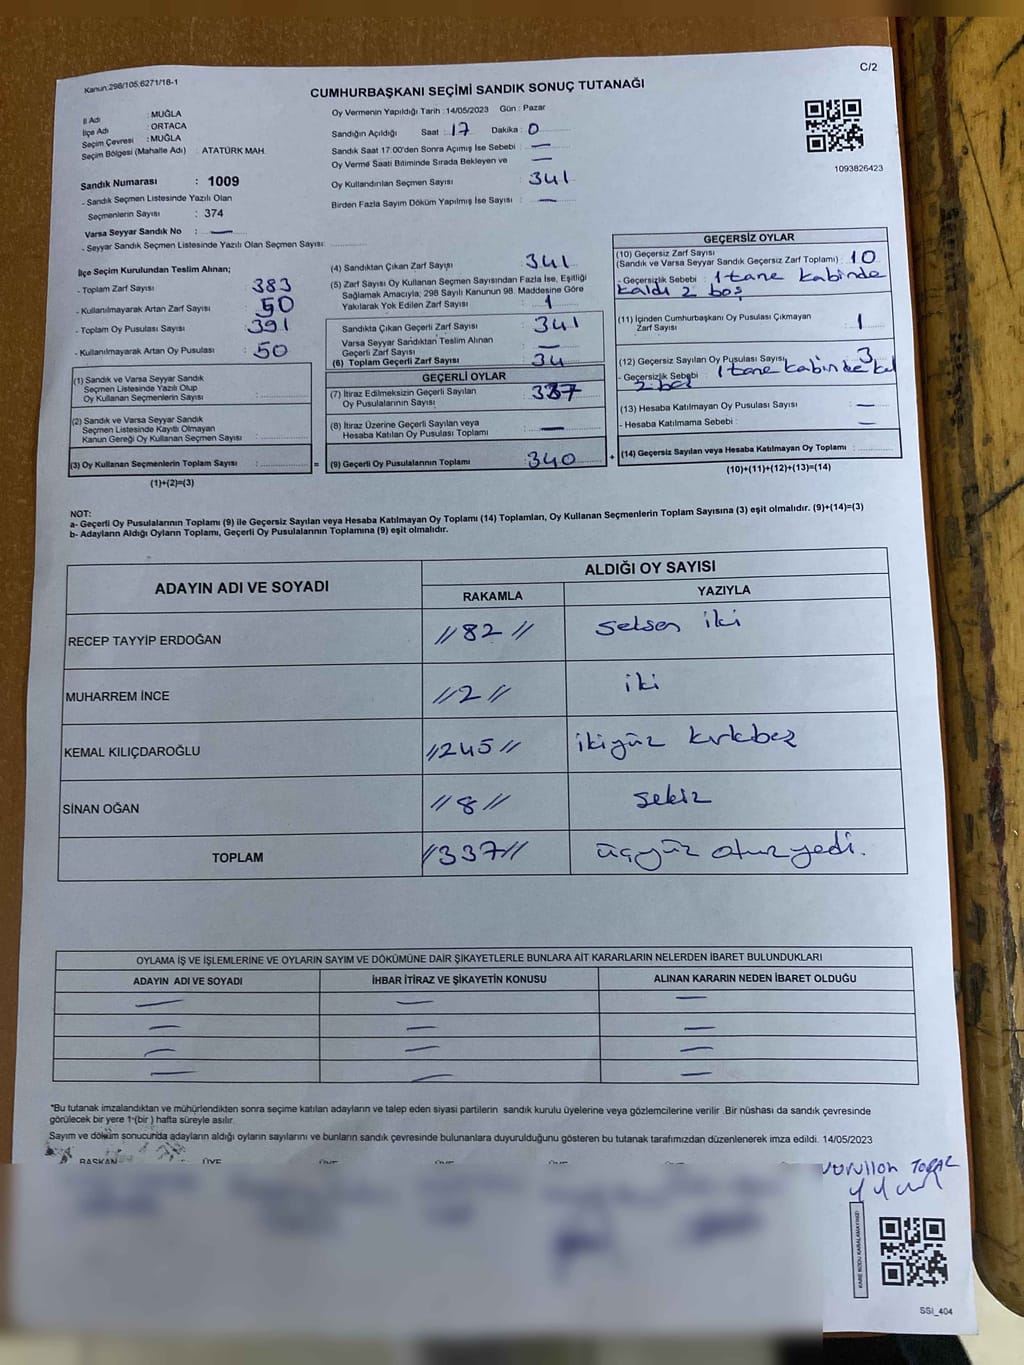 Kanun:298/105,6271/18-1
C/2
CUMHURBAŞKANI SEÇİMİ SANDIK SONUÇ TUTANAĞI
İl Adı : MUĞLA
İlçe Adı : ORTACA
Seçim Çevresi : MUĞLA
Seçim Bölgesi (Mahalle Adı) : ATATÜRK MAH.
Sandık Numarası : 1009
- Sandık Seçmen Listesinde Yazılı Olan
Seçmenlerin Sayısı : 374
Varsa Seyyar Sandık No : —
- Seyyar Sandık Seçmen Listesinde Yazılı Olan Seçmen Sayısı:
Oy Vermenin Yapıldığı Tarih : 14/05/2023 Gün : Pazar
Sandığın Açıldığı Saat : 17 Dakika : 0
Sandık Saat 17:00'den Sonra Açımış İse Sebebi : —
Oy Verme Saati Bitiminde Sırada Bekleyen ve —
Oy Kullandırılan Seçmen Sayısı : 341
Birden Fazla Sayım Döküm Yapılmış İse Sayısı : —
1093826423
İlçe Seçim Kurulundan Teslim Alınan;
- Toplam Zarf Sayısı : 383
- Kullanılmayarak Artan Zarf Sayısı : 50
- Toplam Oy Pusulası Sayısı : 391
- Kullanılmayarak Artan Oy Pusulası : 50
(1) Sandık ve Varsa Seyyar Sandık
Seçmen Listesinde Yazılı Olup
Oy Kullanan Seçmenlerin Sayısı :
(2) Sandık ve Varsa Seyyar Sandık
Seçmen Listesinde Kayıtlı Olmayan
Kanun Gereği Oy Kullanan Seçmen Sayısı :
(3) Oy Kullanan Seçmenlerin Toplam Sayısı : =
(1)+(2)=(3)
(4) Sandıktan Çıkan Zarf Sayısı : 341
(5) Zarf Sayısı Oy Kullanan Seçmen Sayısından Fazla İse, Eşitliği
Sağlamak Amacıyla; 298 Sayılı Kanunun 98. Maddesine Göre
Yakılarak Yok Edilen Zarf Sayısı : 1
Sandıkta Çıkan Geçerli Zarf Sayısı : 341
Varsa Seyyar Sandıktan Teslim Alınan
Geçerli Zarf Sayısı : —
(6) Toplam Geçerli Zarf Sayısı : 34
GEÇERLİ OYLAR
(7) İtiraz Edilmeksizin Geçerli Sayılan
Oy Pusulalarının Sayısı : 337
(8) İtiraz Üzerine Geçerli Sayılan veya
Hesaba Katılan Oy Pusulası Toplamı : —
(9) Geçerli Oy Pusulalarının Toplamı : 340 +
GEÇERSİZ OYLAR
(10) Geçersiz Zarf Sayısı
(Sandık ve Varsa Seyyar Sandık Geçersiz Zarf Toplamı) : 10
- Geçersizlik Sebebi : 1 tane kabinde
kaldı 2 boş
(11) İçinden Cumhurbaşkanı Oy Pusulası Çıkmayan
Zarf Sayısı : 1
(12) Geçersiz Sayılan Oy Pusulası Sayısı : 3
- Geçersizlik Sebebi : 1 tane kabinde kal
2 boş
(13) Hesaba Katılmayan Oy Pusulası Sayısı : —
- Hesaba Katılmama Sebebi : —
(14) Geçersiz Sayılan veya Hesaba Katılmayan Oy Toplamı :
(10)+(11)+(12)+(13)=(14)
NOT:
a- Geçerli Oy Pusulalarının Toplamı (9) ile Geçersiz Sayılan veya Hesaba Katılmayan Oy Toplamı (14) Toplamları, Oy Kullanan Seçmenlerin Toplam Sayısına (3) eşit olmalıdır. (9)+(14)=(3)
b- Adayların Aldığı Oyların Toplamı, Geçerli Oy Pusulalarının Toplamına (9) eşit olmalıdır.
ADAYIN ADI VE SOYADI
ALDIĞI OY SAYISI
RAKAMLA YAZIYLA
RECEP TAYYİP ERDOĞAN //82// seksen iki
MUHARREM İNCE //2// iki
KEMAL KILIÇDAROĞLU //245// ikiyüz kırkbeş
SİNAN OĞAN //8// sekiz
TOPLAM //337// üçyüz otuzyedi.
OYLAMA İŞ VE İŞLEMLERİNE VE OYLARIN SAYIM VE DÖKÜMÜNE DAİR ŞİKAYETLERLE BUNLARA AİT KARARLARIN NELERDEN İBARET BULUNDUKLARI
ADAYIN ADI VE SOYADI İHBAR İTİRAZ VE ŞİKAYETİN KONUSU ALINAN KARARIN NEDEN İBARET OLDUĞU
— — —
— — —
— — —
— — —
*Bu tutanak imzalandıktan ve mühürlendikten sonra seçime katılan adayların ve talep eden siyasi partilerin sandık kurulu üyelerine veya gözlemcilerine verilir .Bir nüshası da sandık çevresinde
görülecek bir yere 1-(bir ) hafta süreyle asılır.
Sayım ve döküm sonucunda adayların aldığı oyların sayılarını ve bunların sandık çevresinde bulunanlara duyurulduğunu gösteren bu tutanak tarafımızdan düzenlenerek imza edildi. 14/05/2023
BAŞKAN ÜYE ÜYE ÜYE ÜYE
KARE KODU KARALAMAYINIZ!
SSI_404